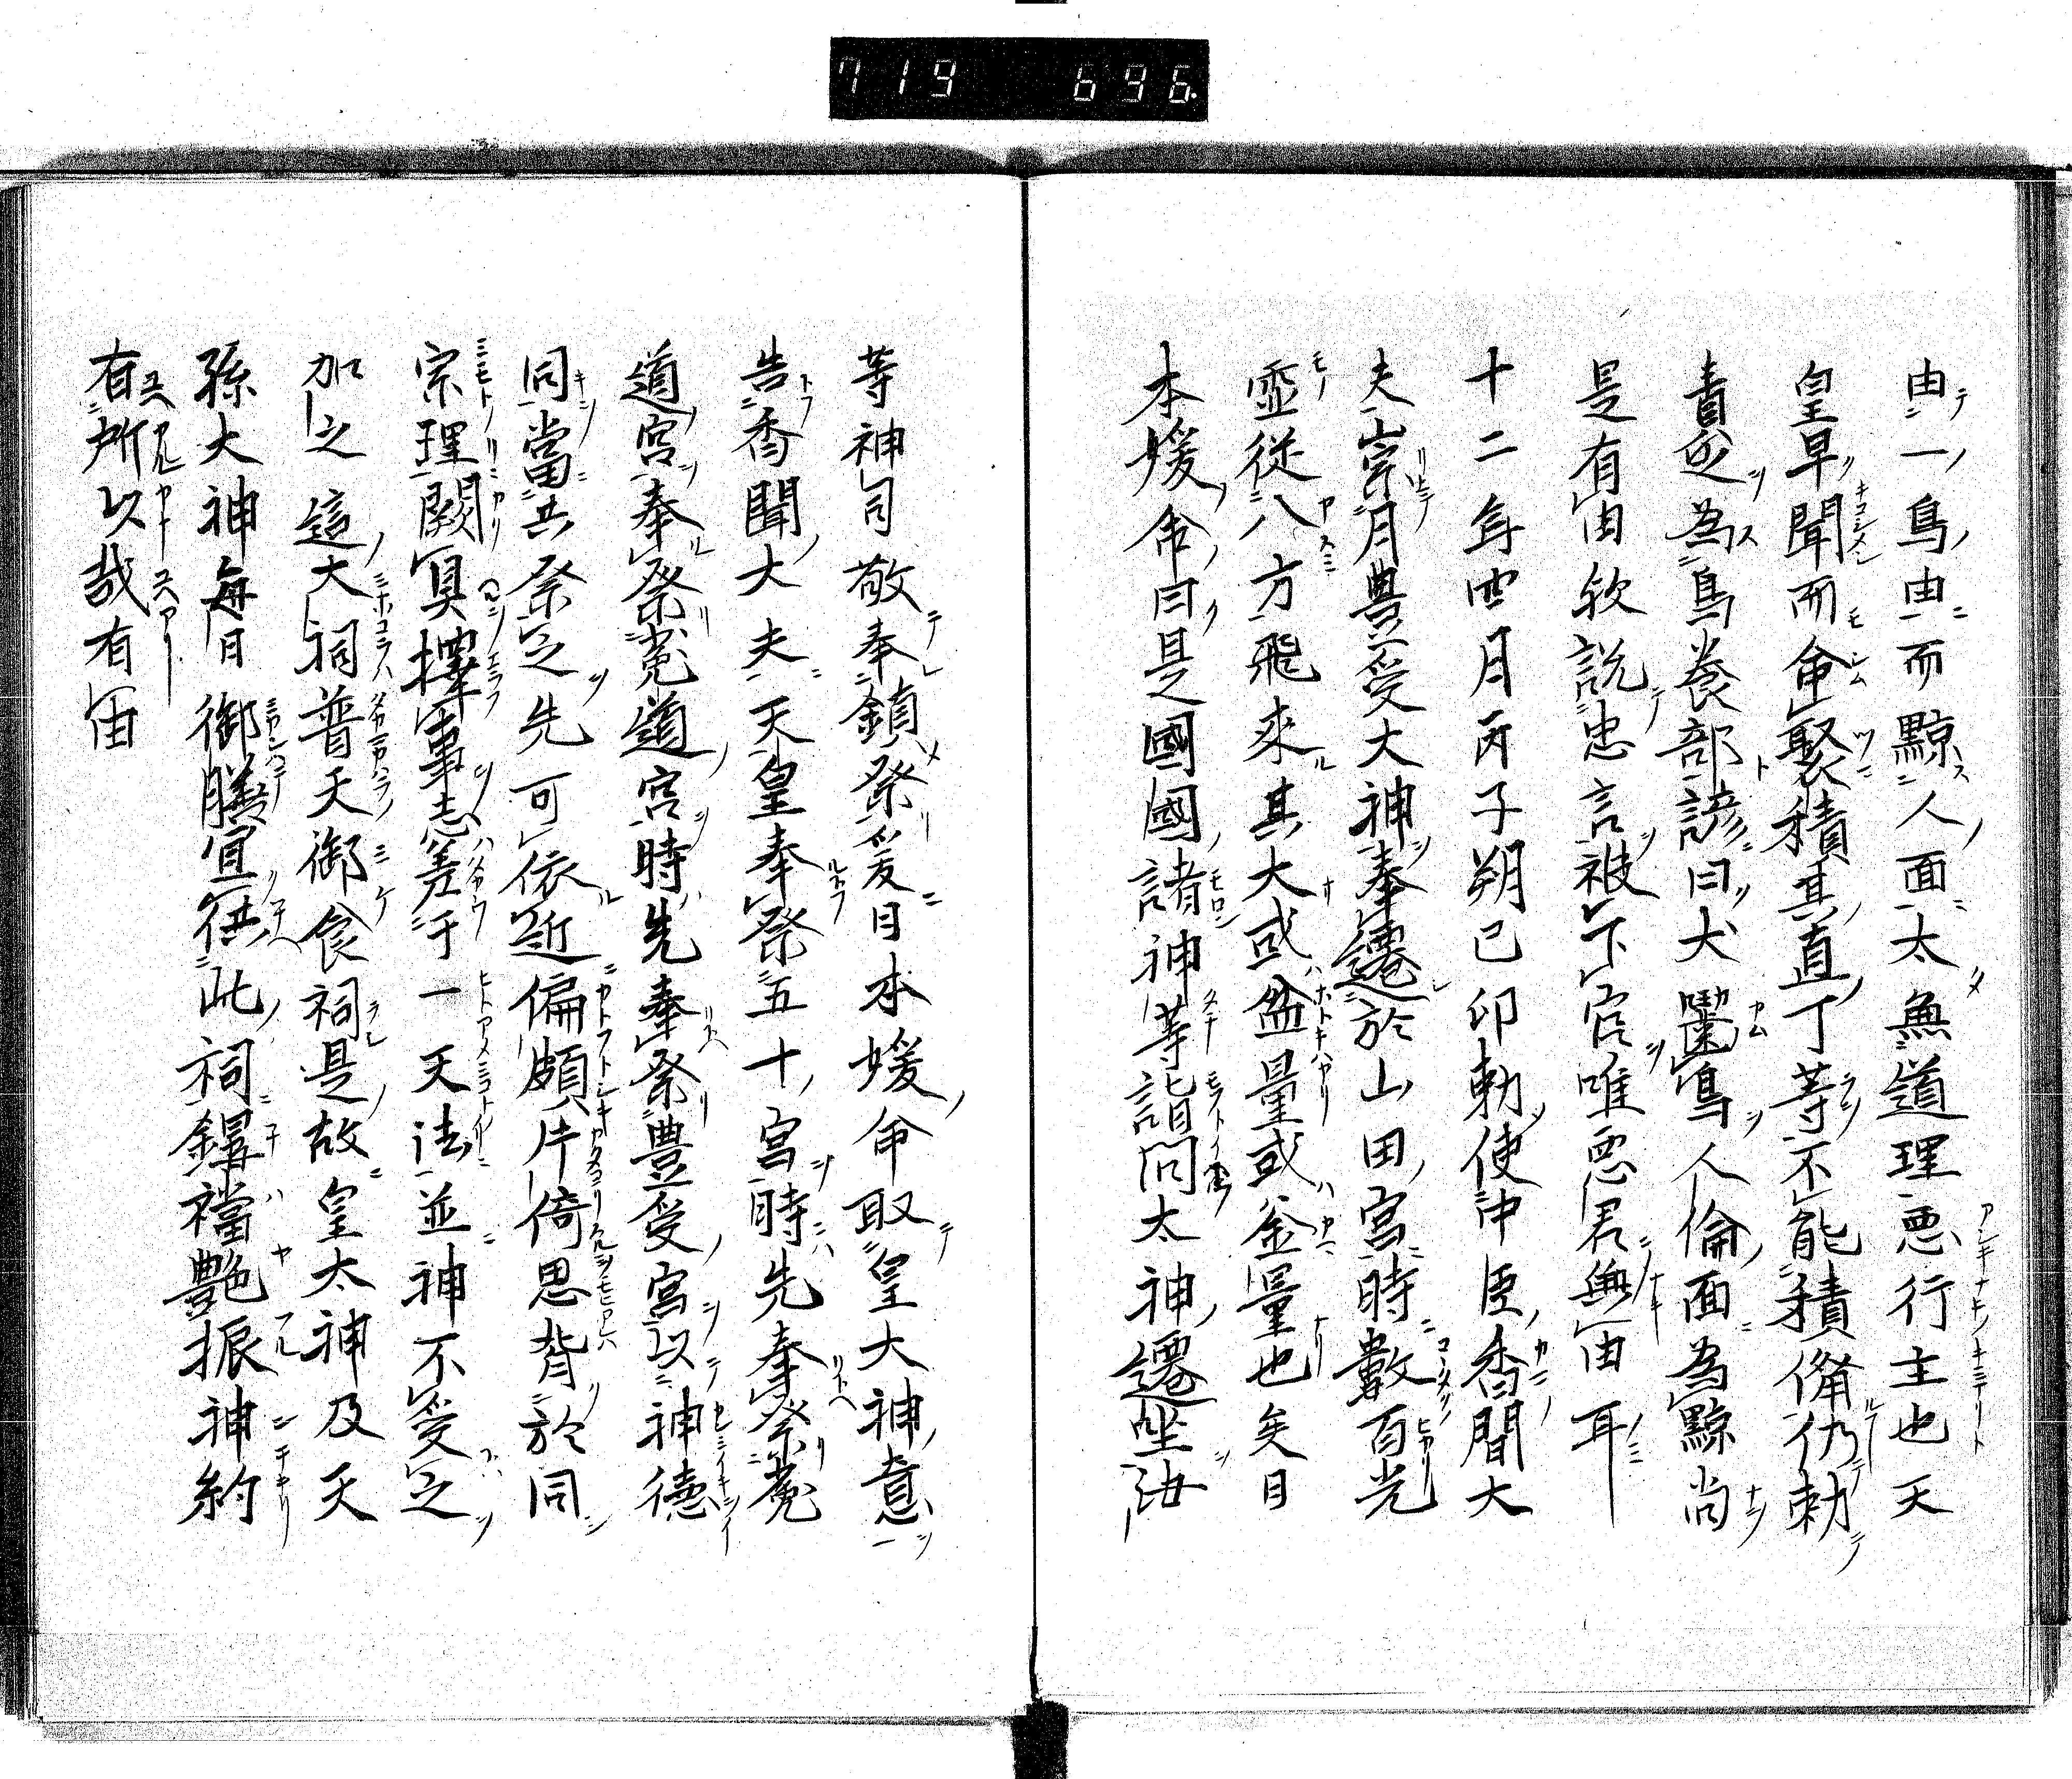 719 696.
由一鳥由而黥人面太無道理悪行主也天
皇早聞而命聚積其直丁等不能積備仍勅
責之為鳥養部諺曰犬囓鳥人倫面為黥尚
是有由欤説忠言被下官唯悪君無由耳
十二年四月丙子朔己卯勅使中臣香聞大
夫宗月豊受大神奉遷於山田宮時數百光
霊従八方飛来其大或盆量或釜量也矣日
本媛命曰是國國諸神等詣問太神遷坐汝
等神司敬奉鎮祭爰日本媛命取皇大神意
告香聞大夫天皇奉祭五十宮時先奉祭菟
道宮奉祭菟道宮時先奉祭豊受宮以神徳
同當共祭之先可依近偏頗片倚思背於同
宗理闕真擇軍志差于一天法並神不受之
加之這大祠普天御食祠是故皇太神及天
孫大神毎日御膳宜供此祠鐸襠艶振神約
有所以哉有由